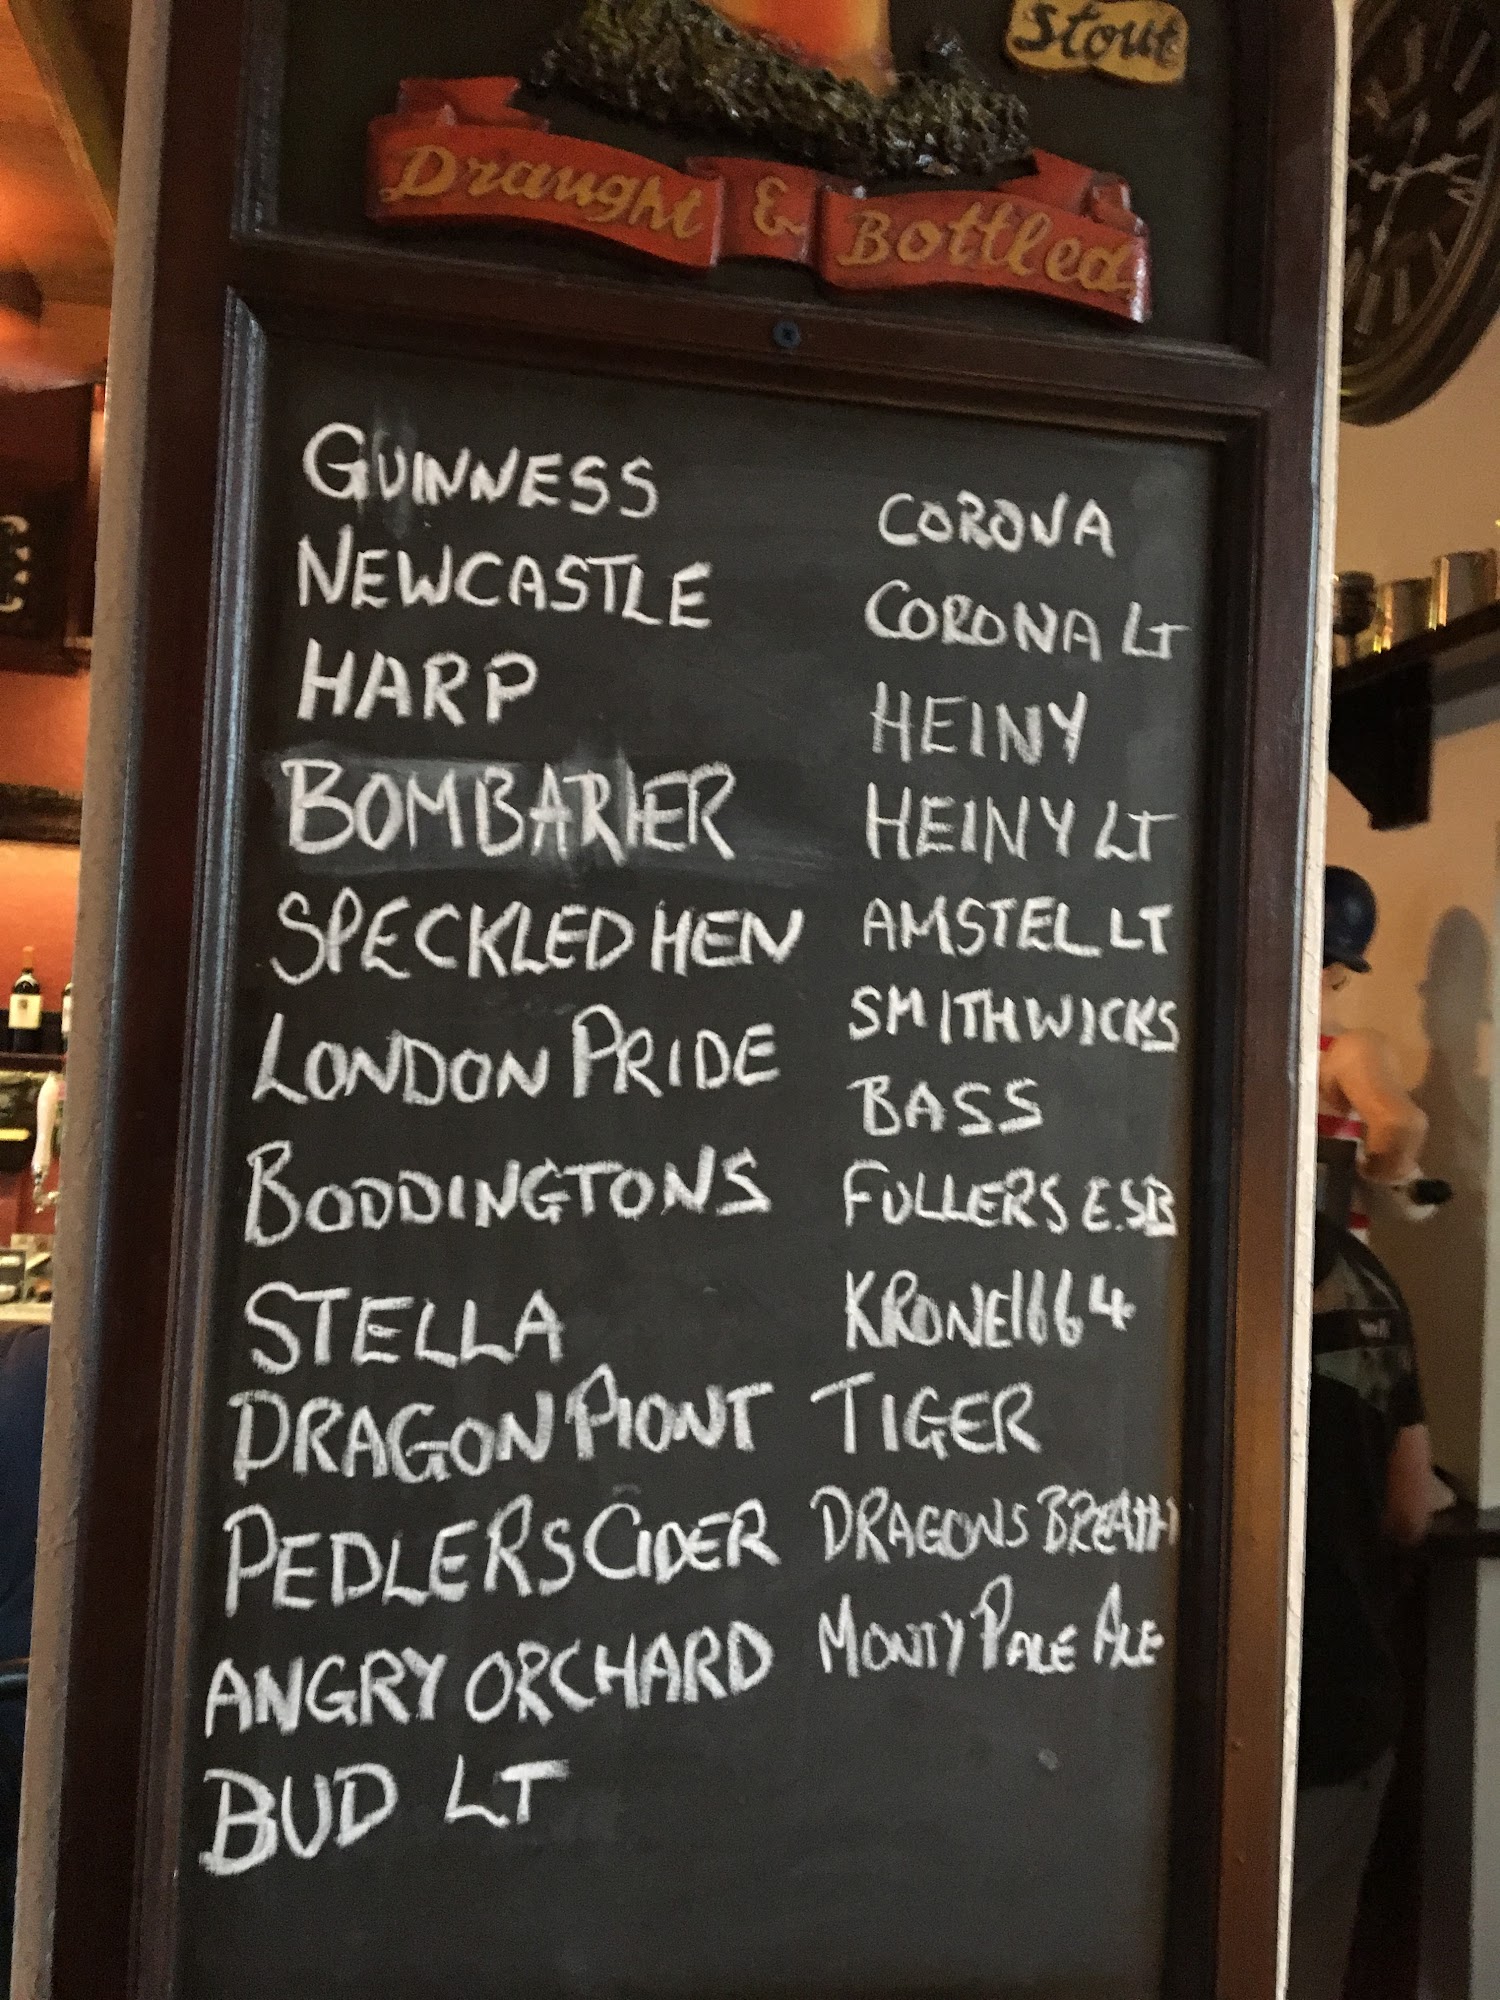 Stout
Draught & Bottled
GUINNESS
NEWCASTLE
HARP
BOMBARIER
SPECKLED HEN
LONDON PRIDE
BODDINGTONS
STELLA
DRAGON PIONT
PEDLERS CIDER
ANGRY ORCHARD
BUD LT
CORONA
CORONA LT
HEINY
HEINY LT
AMSTEL LT
SMITHWICKS
BASS
FULLERS E.SB
KRONE1664
TIGER
DRAGONS BREATH
MONTY PALE ALE